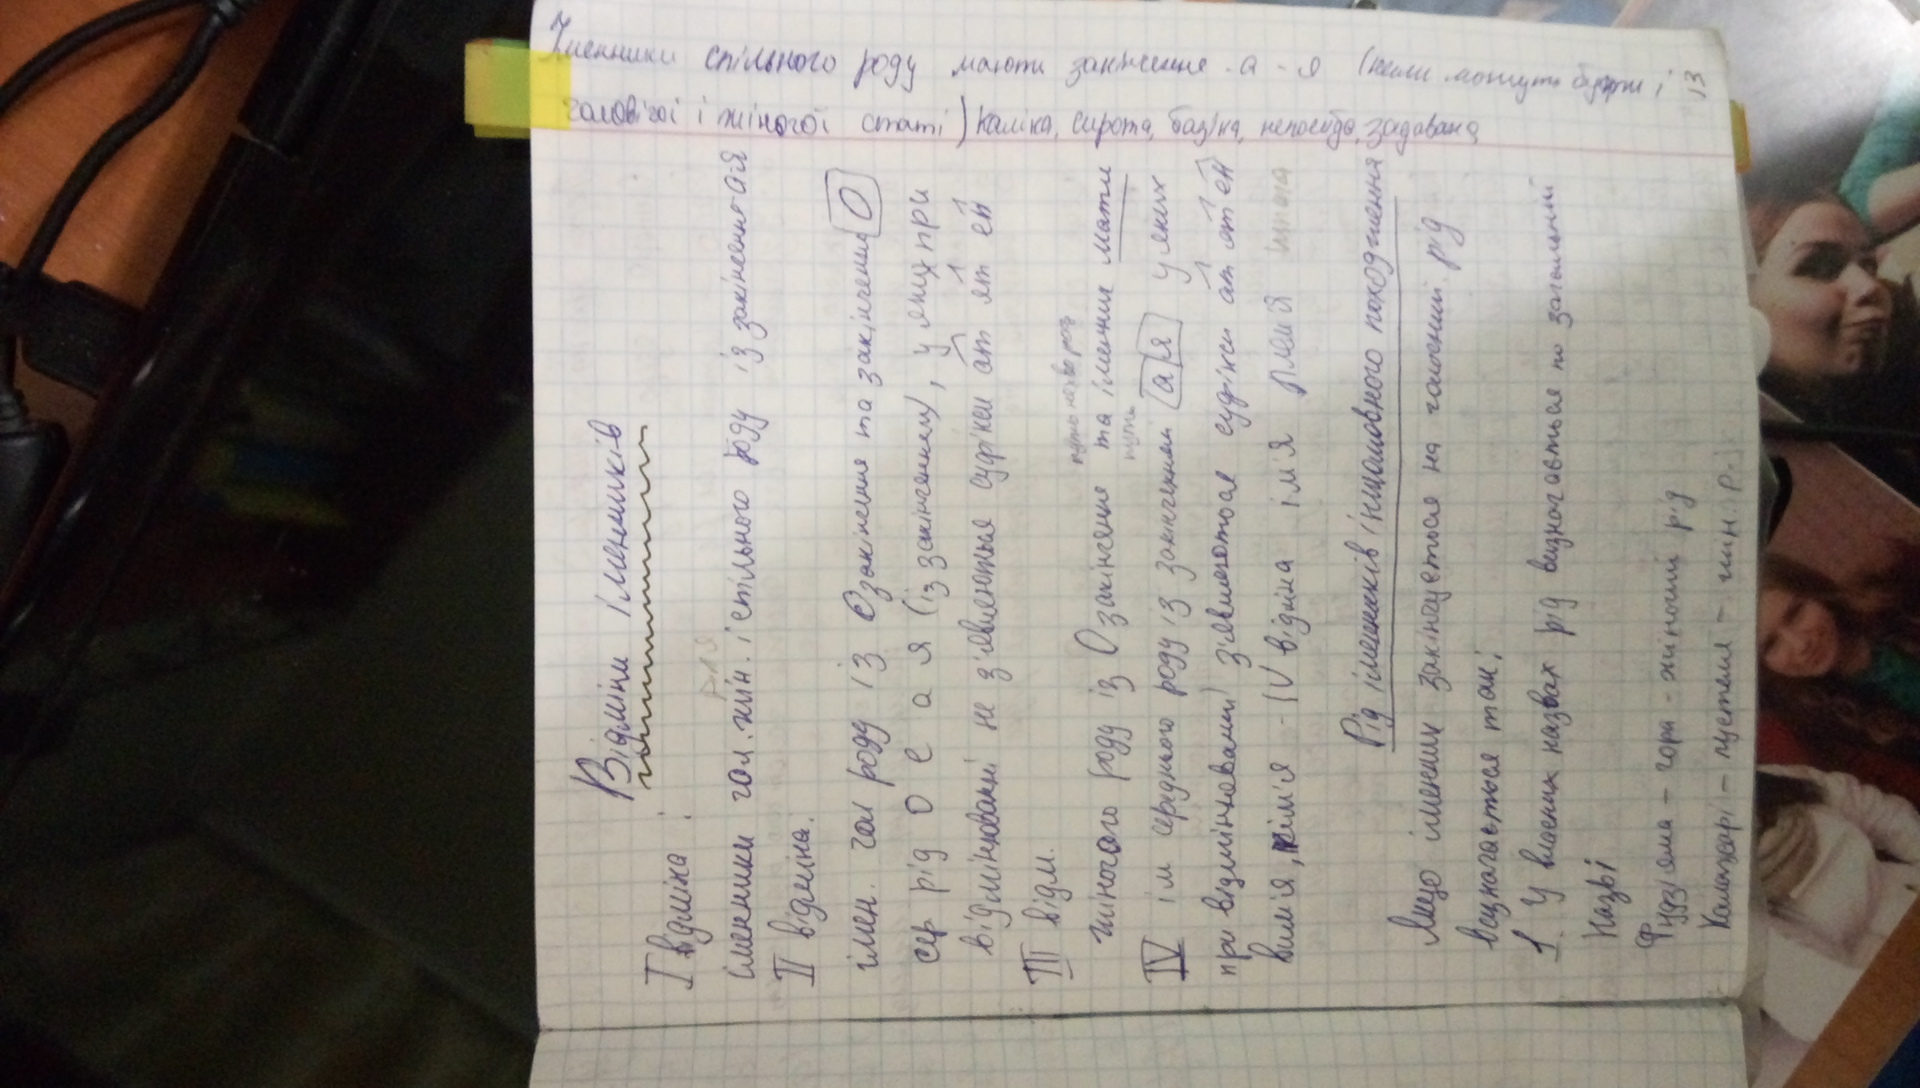 Іменники спільного роду мають закінчення -а -я (ними можуть бути і
чоловічої і жіночої статі) каліка, сирота, базіка, непосида, задавака
13
Відміни іменників
І відміна:
Іменники чол. жін. і спільного роду із закінченн -а я
ІІ відміна.
імен. чол роду із О закінчення та закінчення О
сер рід о е а я (із закінченням), у яких при
відмінюванні не з'являються суфікси ат ят ен
ІІІ відм.
жіночого роду із О закінчення та іменник мати
ІV ім середнього роду із закінченням а я у яких
при відмінюванні з'являються суфікси ат ят ен
вим'я, плем'я - IV відміна ім'я
Рід іменників іншомовного походження
Якщо іменник закінчується на голосний, рід
визначається так:
1. У власних назвах рід визначається по загальній
назві
Фудзіяма - гора - жіночий рід
Калахарі - пустеля - жін. р.